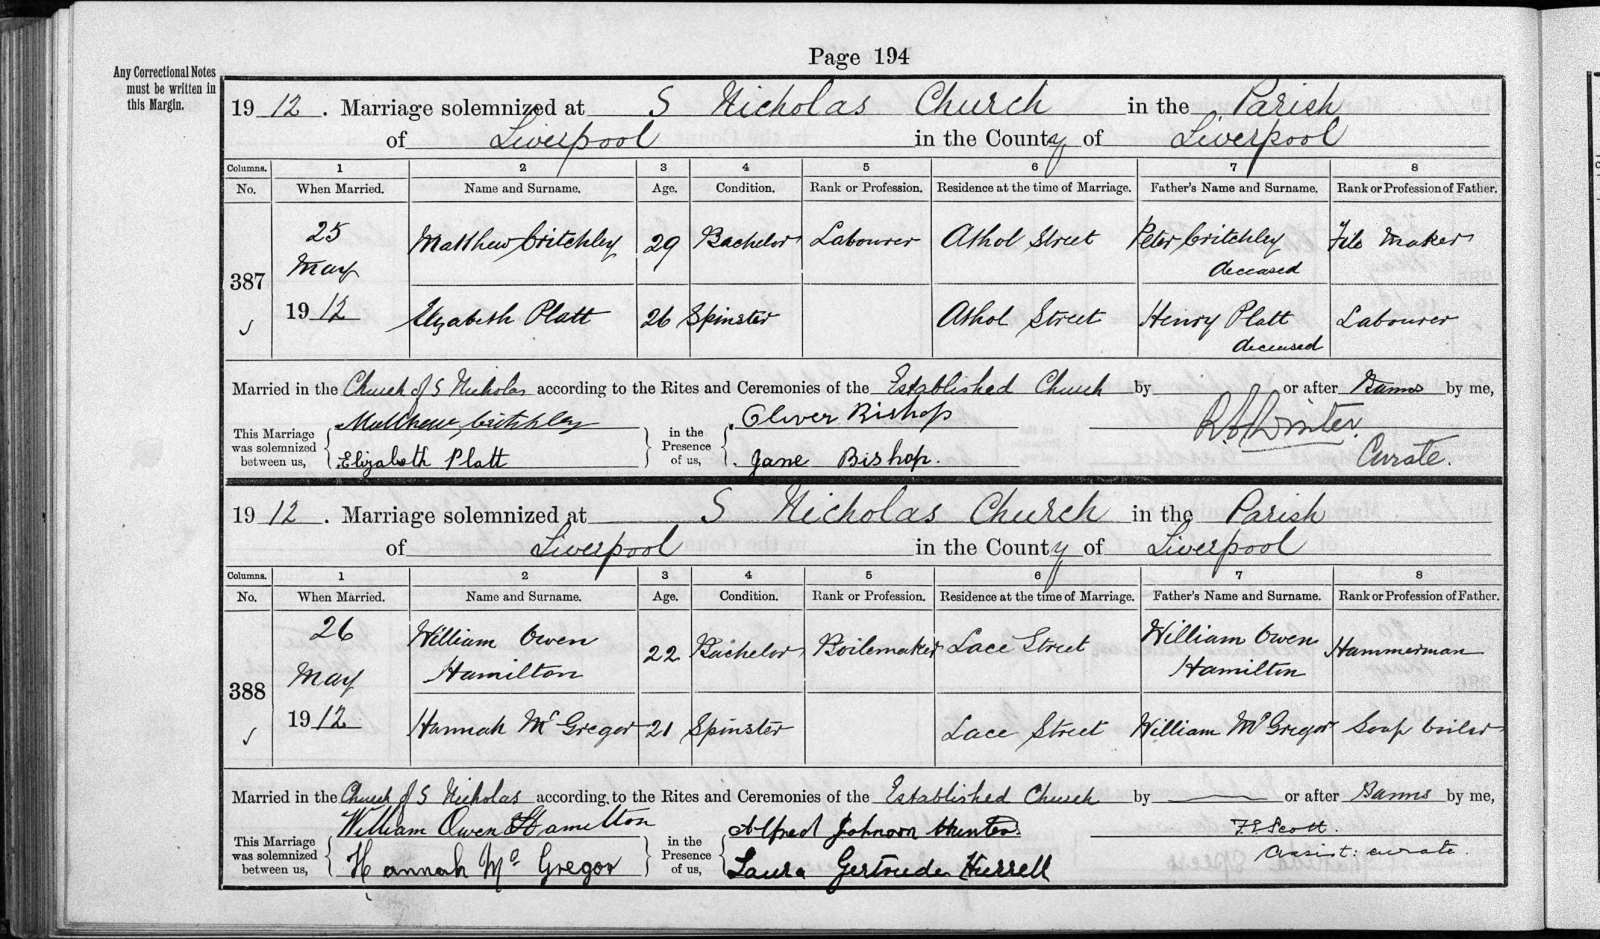 Page 194
Any Correctional Notes
must be written in
this Margin.
1912. Marriage solemnized at S Nicholas Church in the Parish
of Liverpool in the County of Liverpool
Columns. 1 2 3 4 5 6 7 8
No. When Married. Name and Surname. Age. Condition. Rank or Profession. Residence at the time of Marriage. Father's Name and Surname. Rank or Profession of Father.
25 Matthew Critchley 29 Bachelor Labourer Athol Street Peter Critchley File Maker
May deceased
387
1912 Elizabeth Platt 26 Spinster Athol Street Henry Platt Labourer
deceased
Married in the Church of S Nicholas according to the Rites and Ceremonies of the Established Church by or after Banns by me,
Matthew Critchley Oliver Bishop Winter.
This Marriage was solemnized between us, in the Presence of us,
Elizabeth Platt Jane Bishop. Curate.
1912. Marriage solemnized at S Nicholas Church in the Parish
of Liverpool in the County of Liverpool
Columns. 1 2 3 4 5 6 7 8
No. When Married. Name and Surname. Age. Condition. Rank or Profession. Residence at the time of Marriage. Father's Name and Surname. Rank or Profession of Father.
26 William Owen 22 Bachelor Boilemaker Lace Street William Owen Hammerman
May Hamilton Hamilton
388
1912 Hannah Mc Gregor 21 Spinster Lace Street William Mc Gregor Soap boiler
Married in the Church of S Nicholas according to the Rites and Ceremonies of the Established Church by or after Banns by me,
William Owen Hamilton Alfred Johnson Hunter. F.E. Scott.
This Marriage was solemnized between us, in the Presence of us,
Hannah Mc Gregor Laura Gertrude Hurrell Assist: curate.